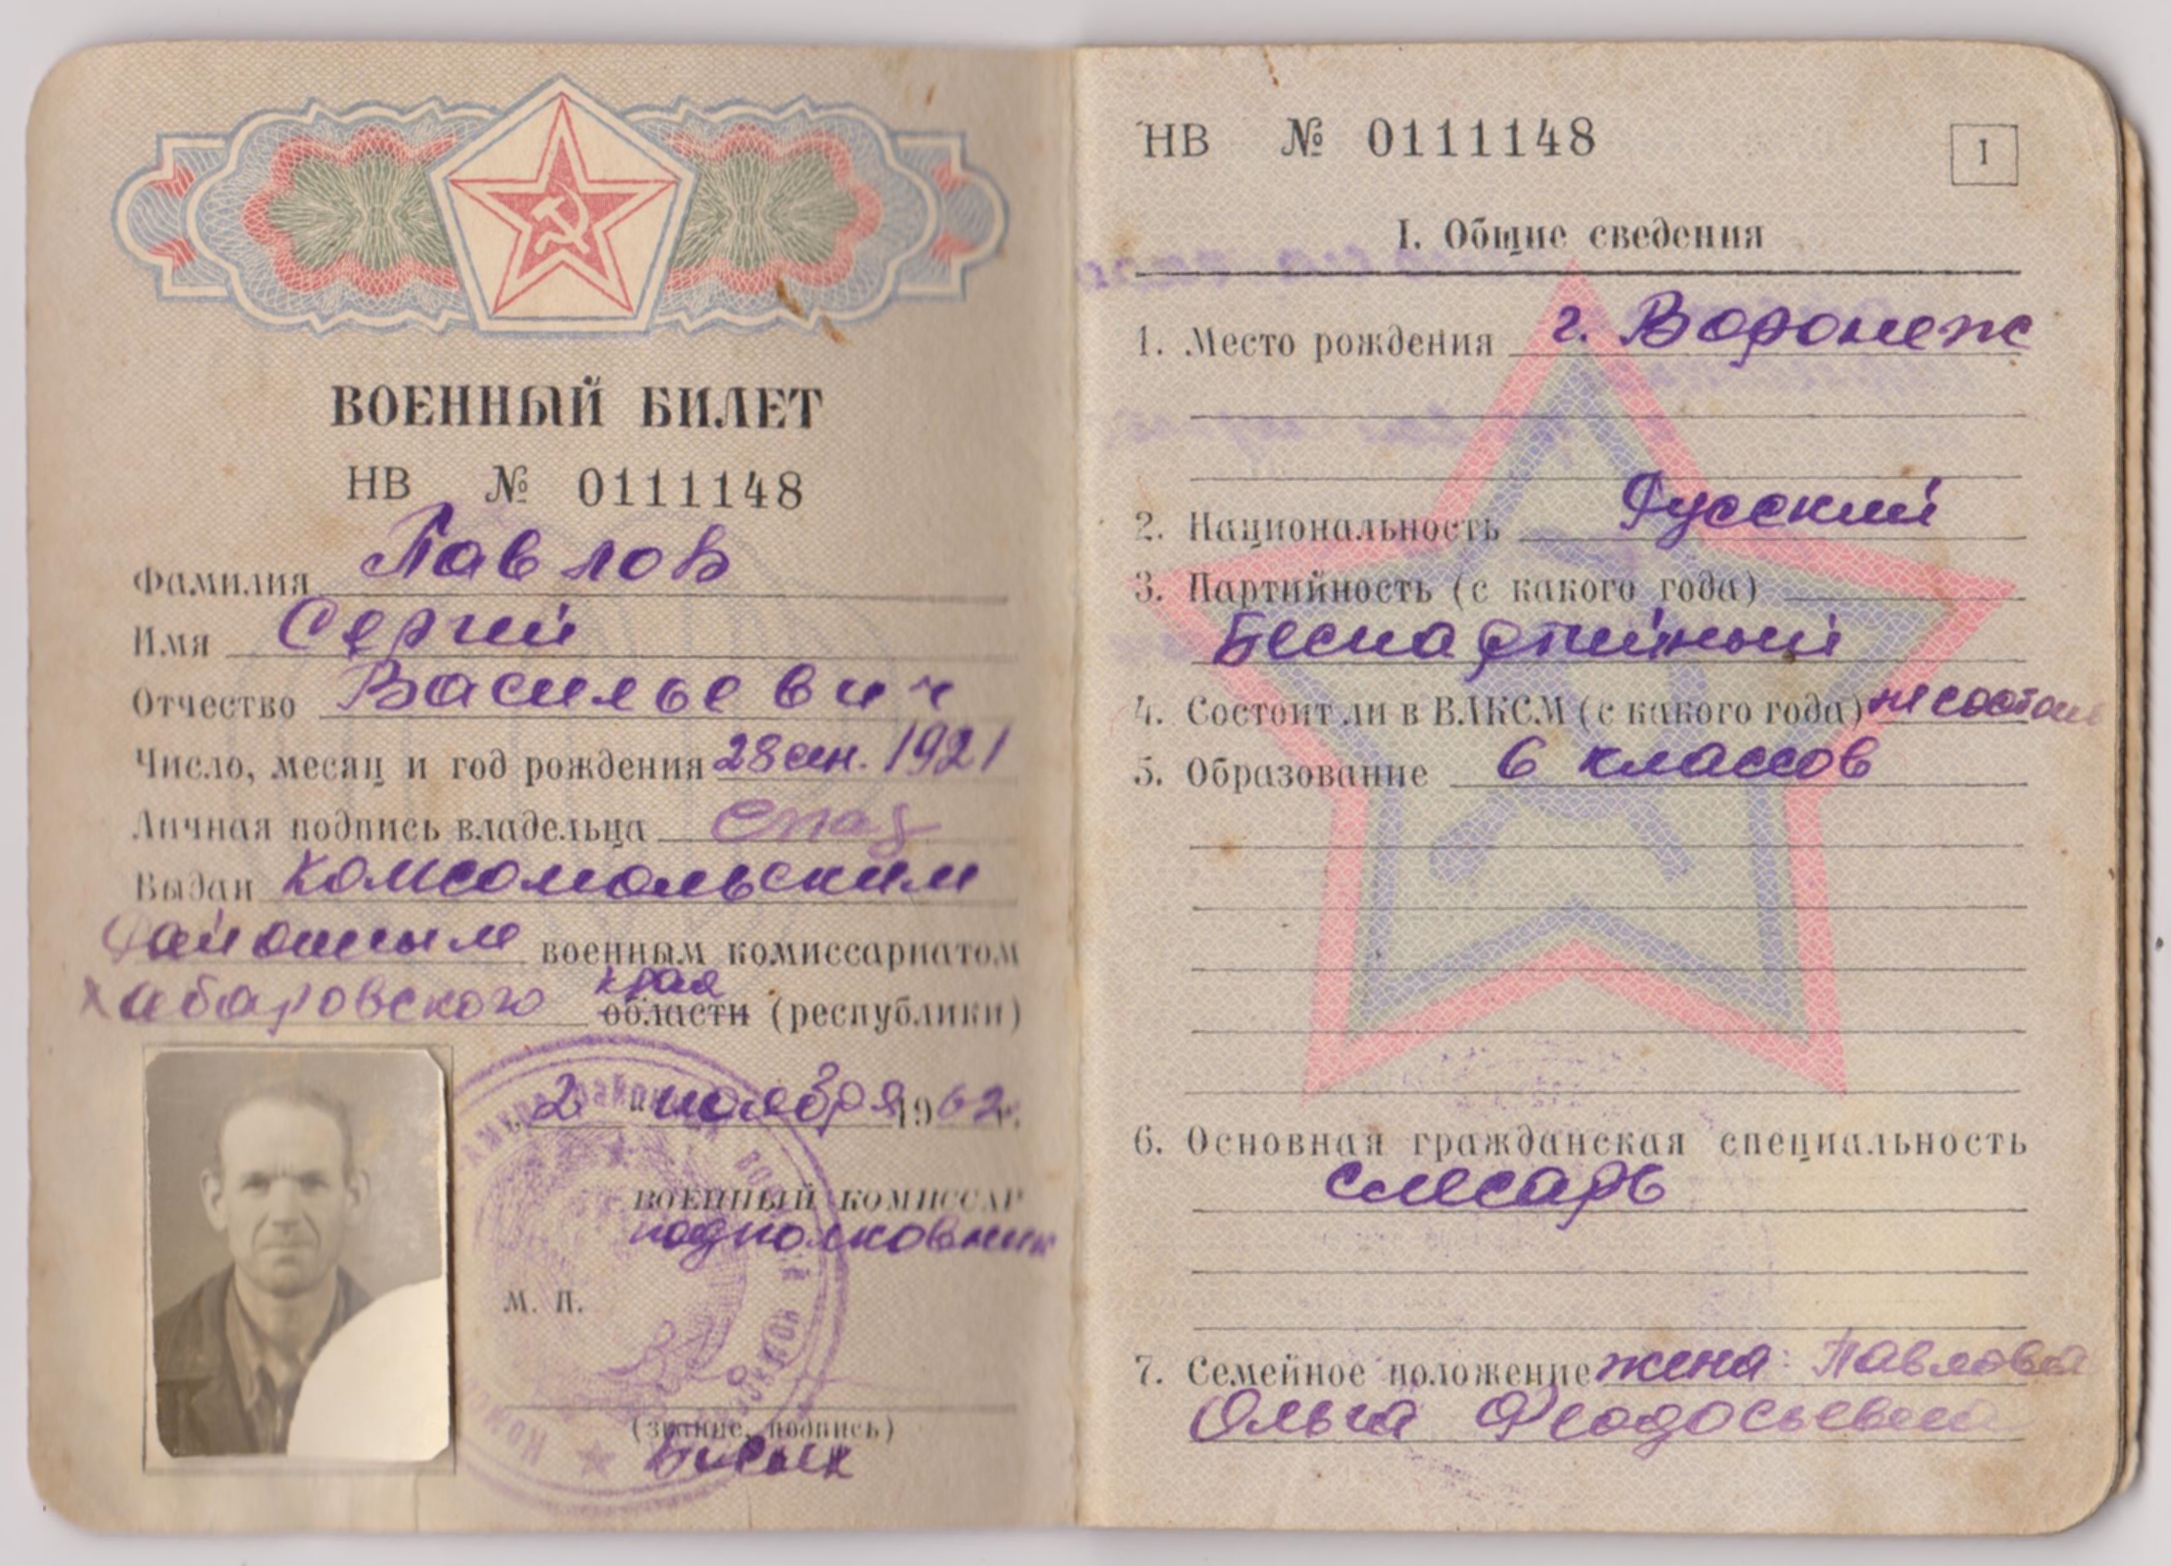 ВОЕННЫЙ БИЛЕТ
НВ № 0111148
Фамилия Павлов
Имя Сергий
Отчество Васильевич
Число, месяц и год рождения 28 сен. 1921
Личная подпись владельца
Выдан Комсомольским
районным военным комиссариатом
Хабаровского края области (республики)
„ 2 " ноября 1962 г.
ВОЕННЫЙ КОМИССАР
подполковник
М. П.
(звание, подпись)
НВ № 0111148
1
I. Общие сведения
1. Место рождения г. Воронеж
2. Национальность Русский
3. Партийность (с какого года)
Беспартийный
4. Состоит ли в ВЛКСМ (с какого года) не состоит
5. Образование 6 классов
6. Основная гражданская специальность
слесарь
7. Семейное положение жена: Павлова
Ольга Феодосьевна